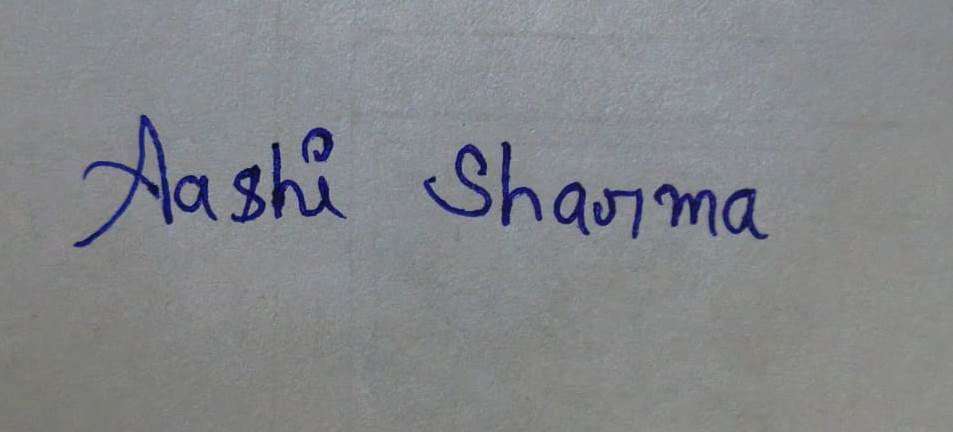 Aashi Sharma